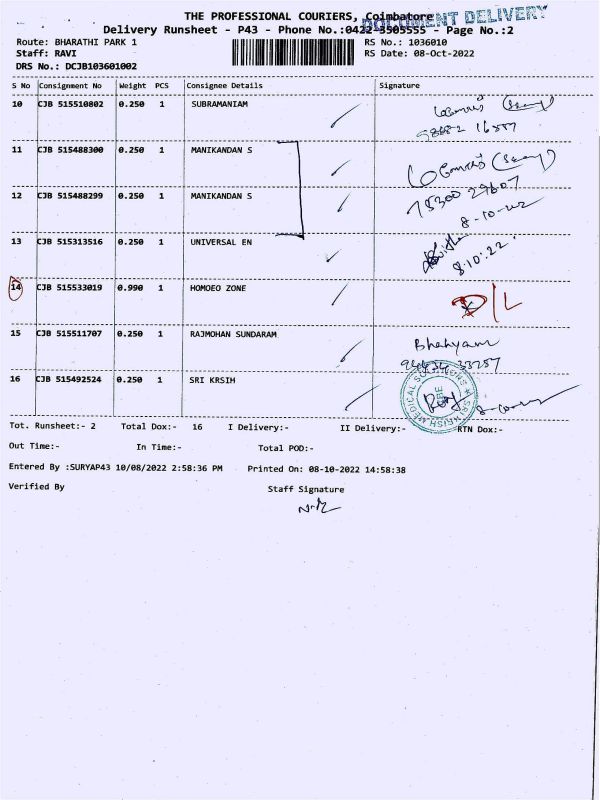 THE PROFESSIONAL COURIERS, Coimbatore
DOCUMENT DELIVERY
Delivery Runsheet - P43 - Phone No.:0422-3505555 - Page No.:2
Route: BHARATHI PARK 1 RS No.: 1036010
Staff: RAVI RS Date: 08-Oct-2022
DRS No.: DCJB103601002
S No Consignment No Weight PCS Consignee Details Signature
10 CJB 515510802 0.250 1 SUBRAMANIAM
11 CJB 515488300 0.250 1 MANIKANDAN S
12 CJB 515488299 0.250 1 MANIKANDAN S
8-10-22
13 CJB 515313516 0.250 1 UNIVERSAL EN
8.10.22.
14 CJB 515533019 0.990 1 HOMOEO ZONE D/L
15 CJB 515511707 0.250 1 RAJMOHAN SUNDARAM
16 CJB 515492524 0.250 1 SRI KRSIH
Tot. Runsheet:- 2 Total Dox:- 16 I Delivery:- II Delivery:- RTN Dox:-
Out Time:- In Time:- Total POD:-
Entered By :SURYAP43 10/08/2022 2:58:36 PM Printed On: 08-10-2022 14:58:38
Verified By Staff Signature